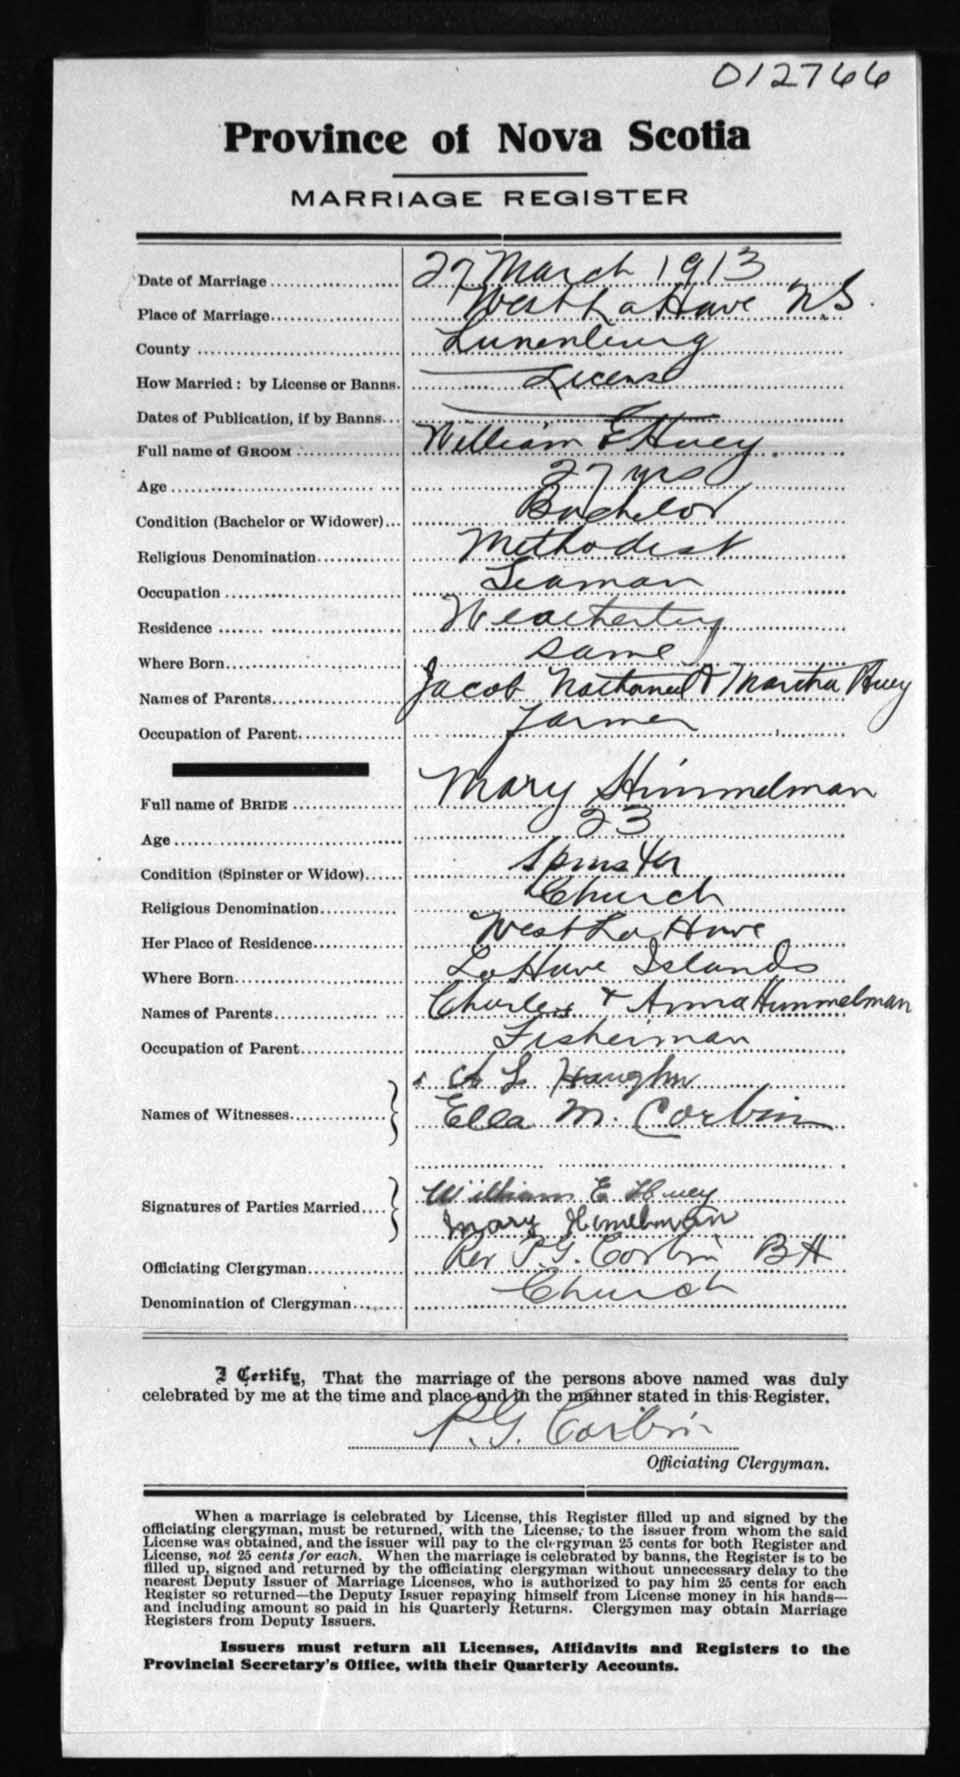 012766
Province of Nova Scotia
MARRIAGE REGISTER
Date of Marriage 27 March 1913
Place of Marriage West LaHave N.S.
County Lunenburg
How Married: by License or Banns. License
Dates of Publication, if by Banns
Full name of GROOM William E Huey
Age 27 yrs
Condition (Bachelor or Widower) Bachelor
Religious Denomination Methodist
Occupation Seaman
Residence
Where Born Same
Names of Parents Jacob Nathaniel & Martha Huey
Occupation of Parent Farmer
Full name of BRIDE Mary Himmelman
Age 23
Condition (Spinster or Widow) Spinster
Religious Denomination Church
Her Place of Residence West LaHave
Where Born LaHave Islands
Names of Parents Charles & Anna Himmelman
Occupation of Parent Fisherman
Names of Witnesses
Ella M. Corbin
Signatures of Parties Married William E Huey
Mary Himelman
Officiating Clergyman Rev P.G. Corbin BA
Denomination of Clergyman Church
I Certify, That the marriage of the persons above named was duly
celebrated by me at the time and place and in the manner stated in this Register.
P.G. Corbin
Officiating Clergyman.
When a marriage is celebrated by License, this Register filled up and signed by the
officiating clergyman, must be returned, with the License, to the issuer from whom the said
License was obtained, and the issuer will pay to the clergyman 25 cents for both Register and
License, not 25 cents for each. When the marriage is celebrated by banns, the Register is to be
filled up, signed and returned by the officiating clergyman without unnecessary delay to the
nearest Deputy Issuer of Marriage Licenses, who is authorized to pay him 25 cents for each
Register so returned—the Deputy Issuer repaying himself from License money in his hands—
and including amount so paid in his Quarterly Returns. Clergymen may obtain Marriage
Registers from Deputy Issuers.
Issuers must return all Licenses, Affidavits and Registers to the
Provincial Secretary's Office, with their Quarterly Accounts.